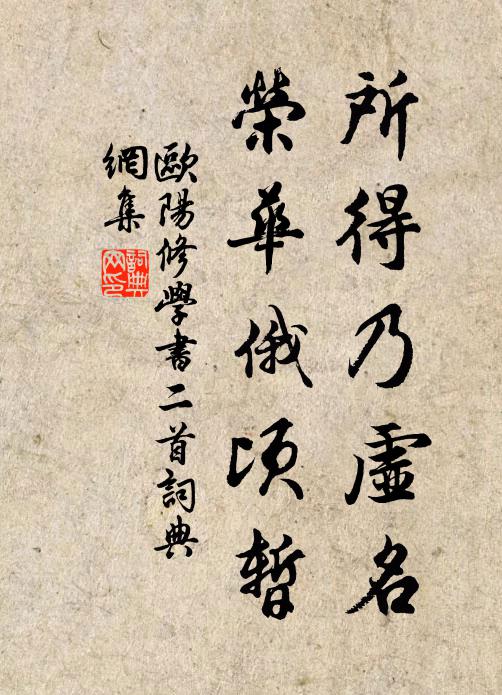 所得乃虛名
榮華俄頃暫
歐陽修學書二首詞典
網集
詞典
网印